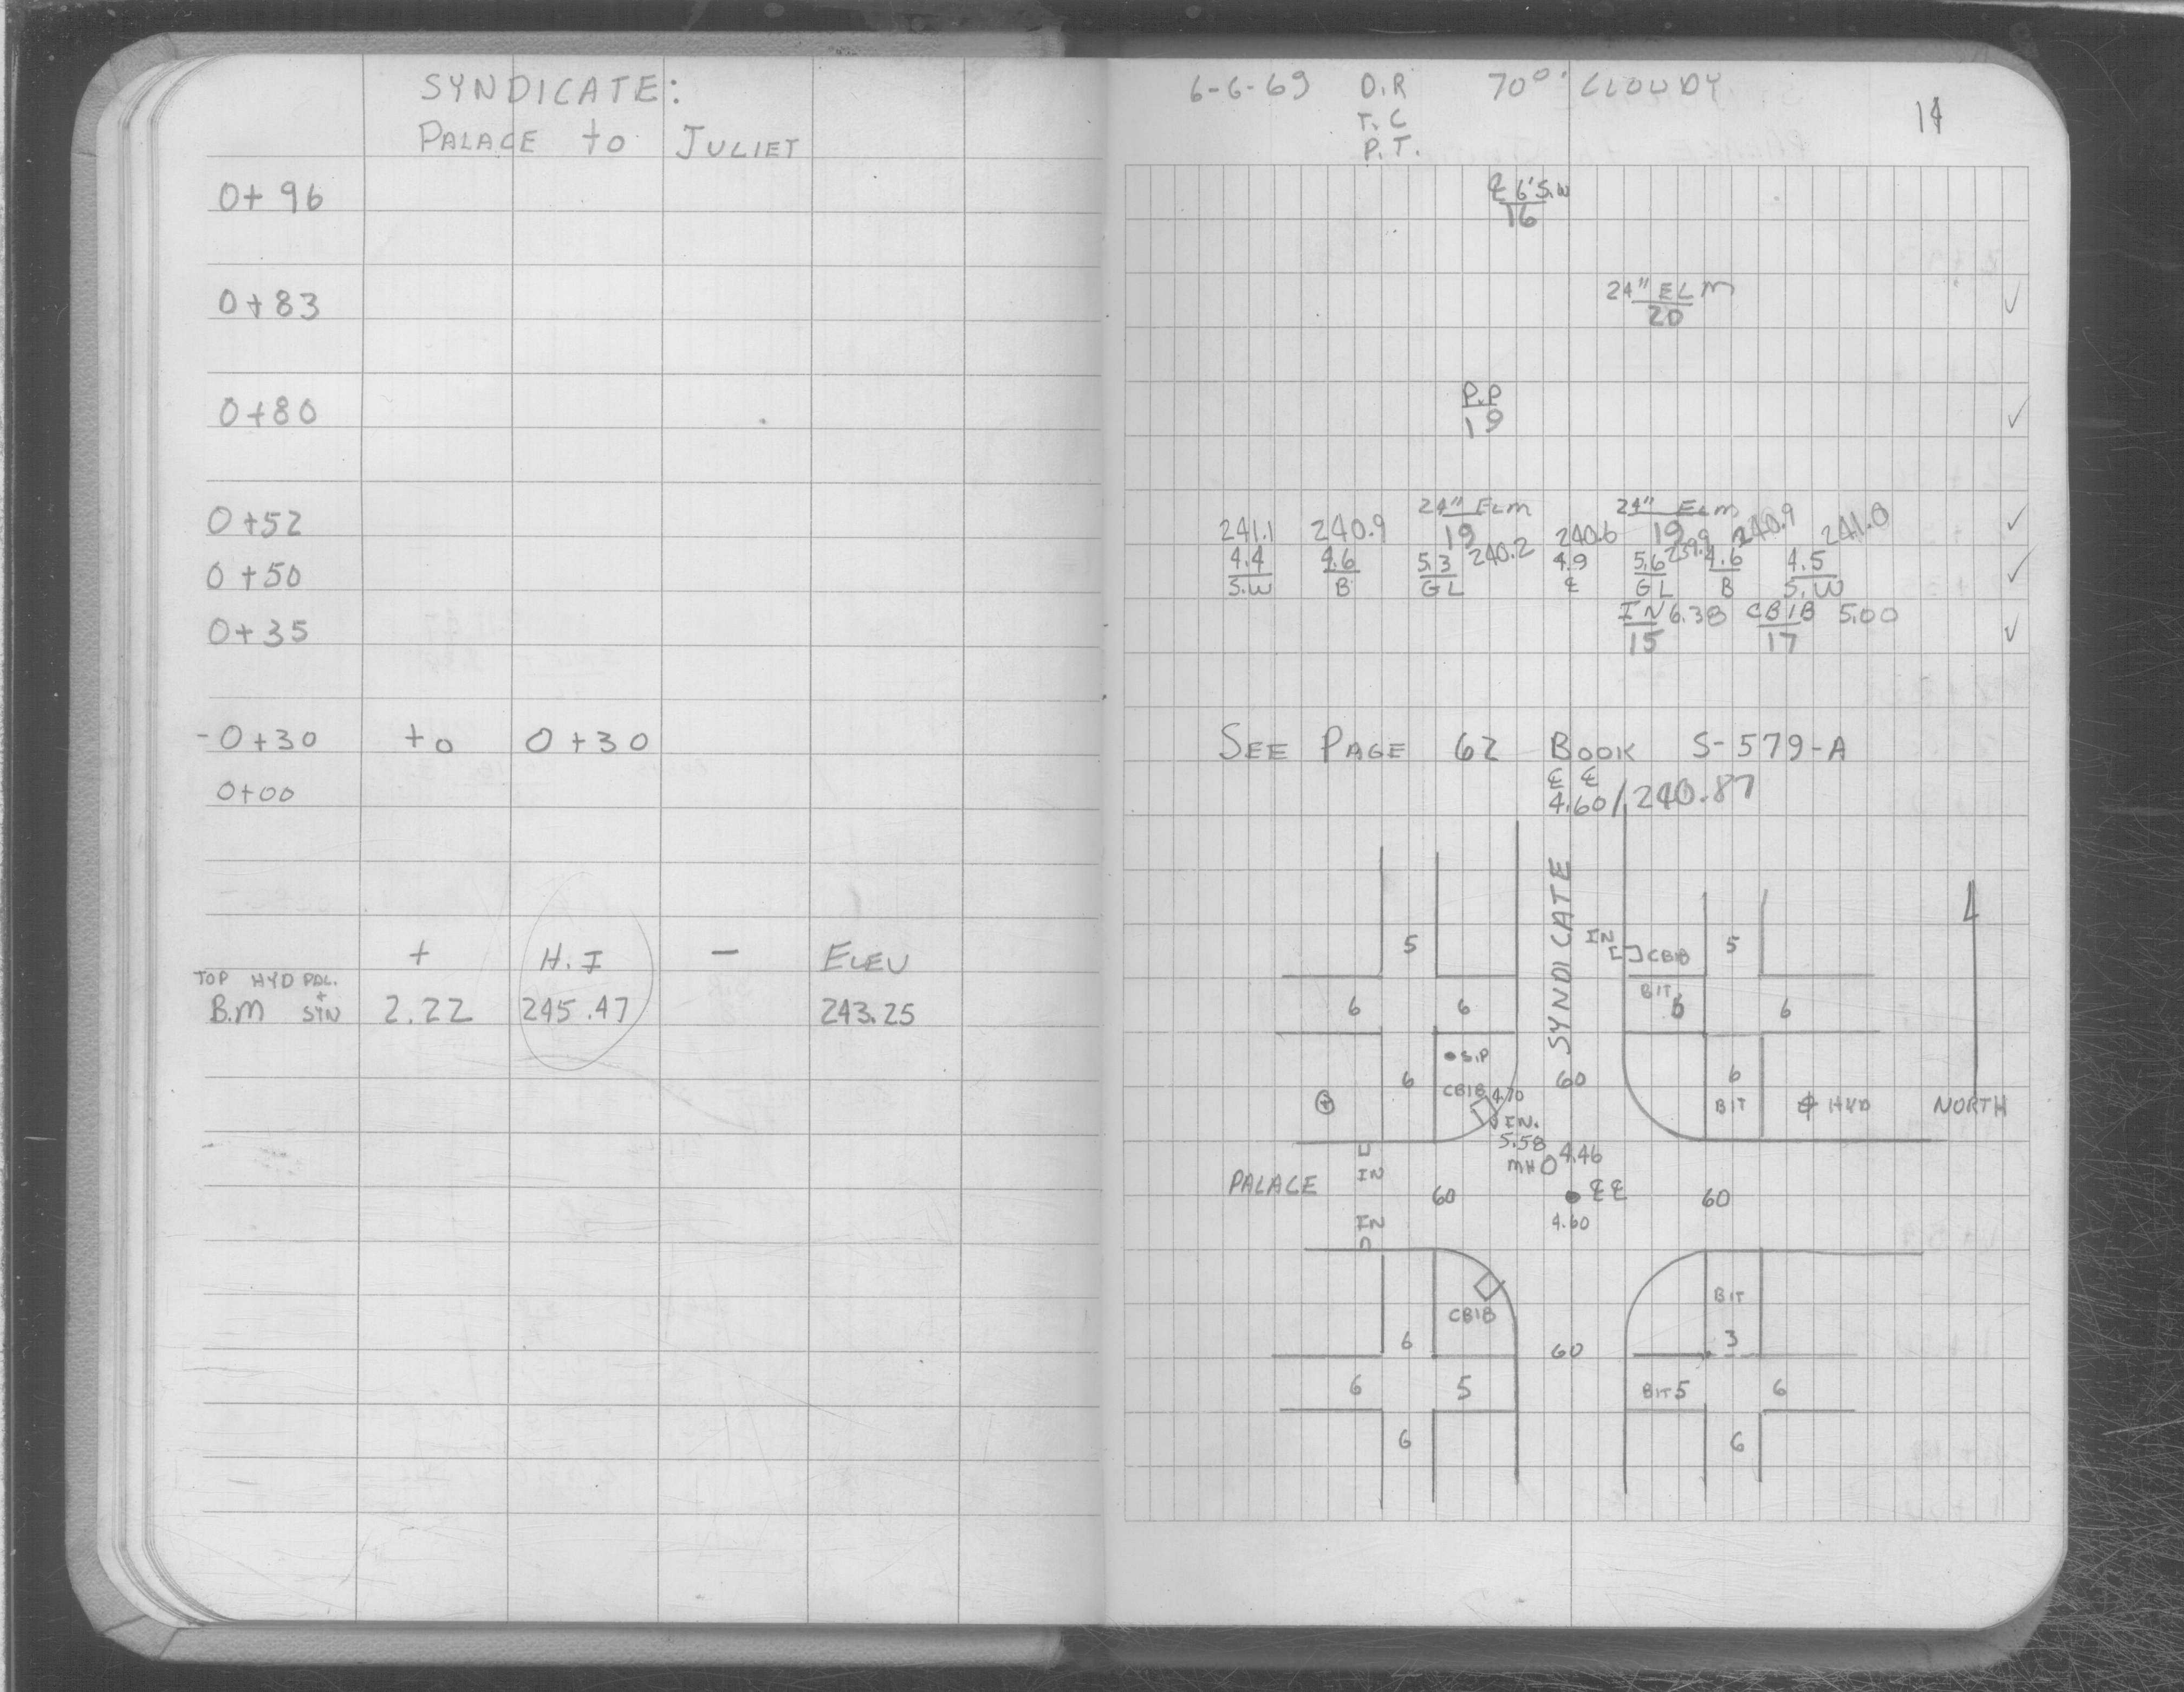 SYNDICATE:
PALACE to JULIET
0+96
0+83
0+80
0+52
0+50
0+35
-0+30 to 0+30
0+00
+ H.I - ELEV
TOP HYD PAL.
B.M + SYN 2.22 245.47 243.25
6-6-69 D.R 70° CLOUDY
T.C
P.T.
14
℄ 6' S.W
16
24" ELM
20
P.P
19
24" ELM 24" ELM
241.1 240.9 19 240.6 19 240.9 241.0
4.4 4.6 5.3 240.2 4.9 5.6 239.9 4.6 4.5
S.W B GL ℄ GL B S.W
IN 6.38 CBIB 5.00
15 17
SEE PAGE 62 BOOK S-579-A
℄ ℄
4.60/240.87
SYNDICATE
5 IN CBIB 5
BIT
6 6 6 6
S.P
6 CBIB 4.70 60 6
IN. BIT HYD NORTH
5.58
MH 4.46
PALACE IN
60 ℄℄ 60
IN 4.60
BIT
CBIB
6 60 3
6 5 BIT 5 6
6 6